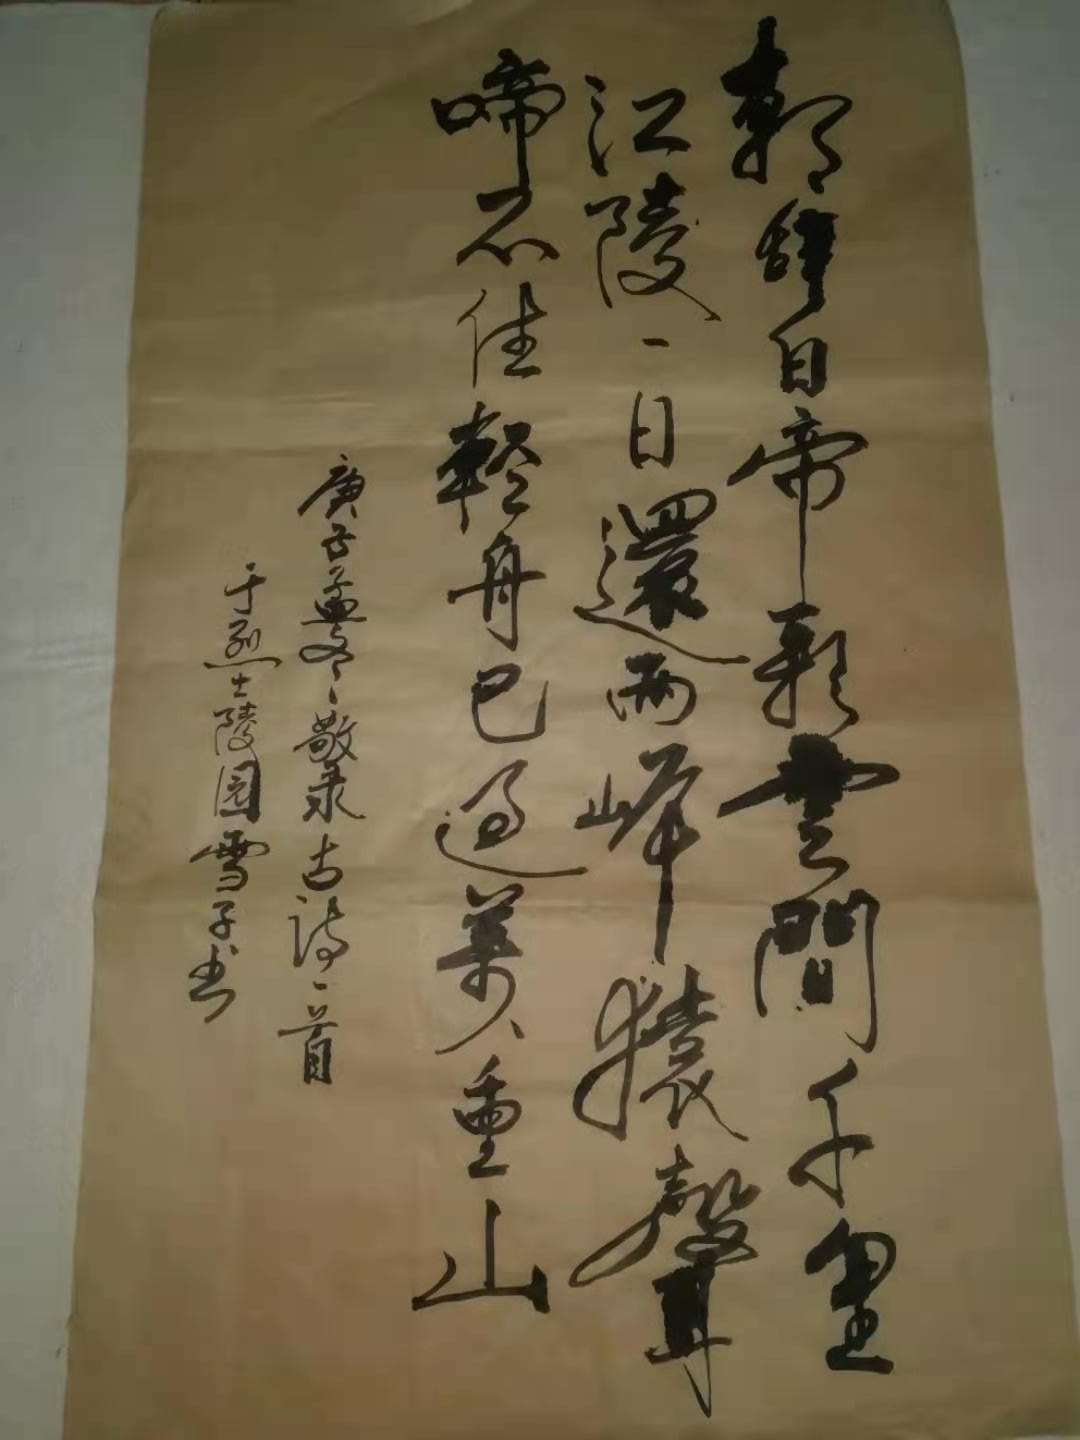 朝辞白帝彩雲間千里
江陵一日還兩岸猿聲
啼不住輕舟已過萬重山
庚子孟冬敬录古詩一首
于烈士陵园雪子书